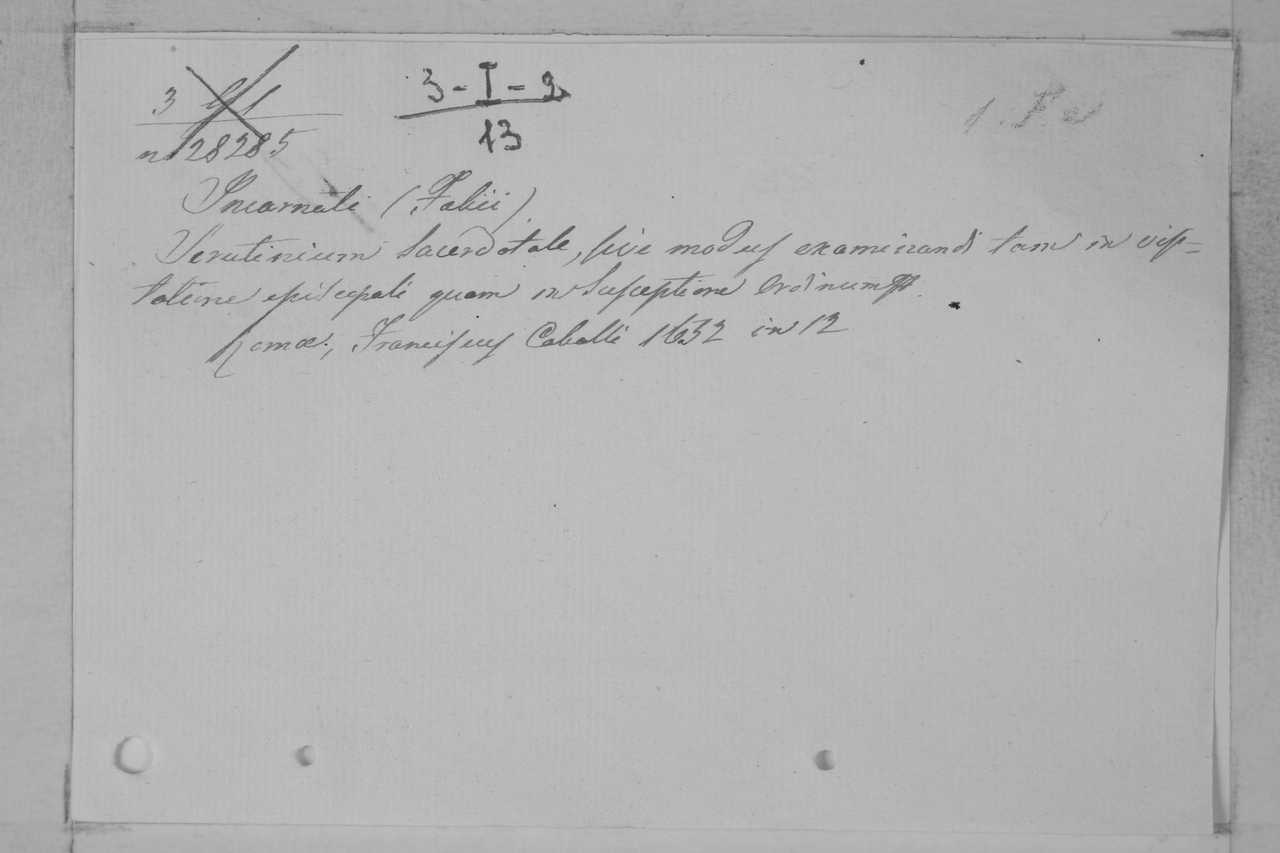 3
n. 28285
3 - I - 2
13
Incarnati (Fabii)
Scrutinium Sacerdotale, sive modus examinandi tam in visi=
tatione episcopali quam in Susceptione Ordinum
Romæ:, Franciscus Caballi 1632 in 12